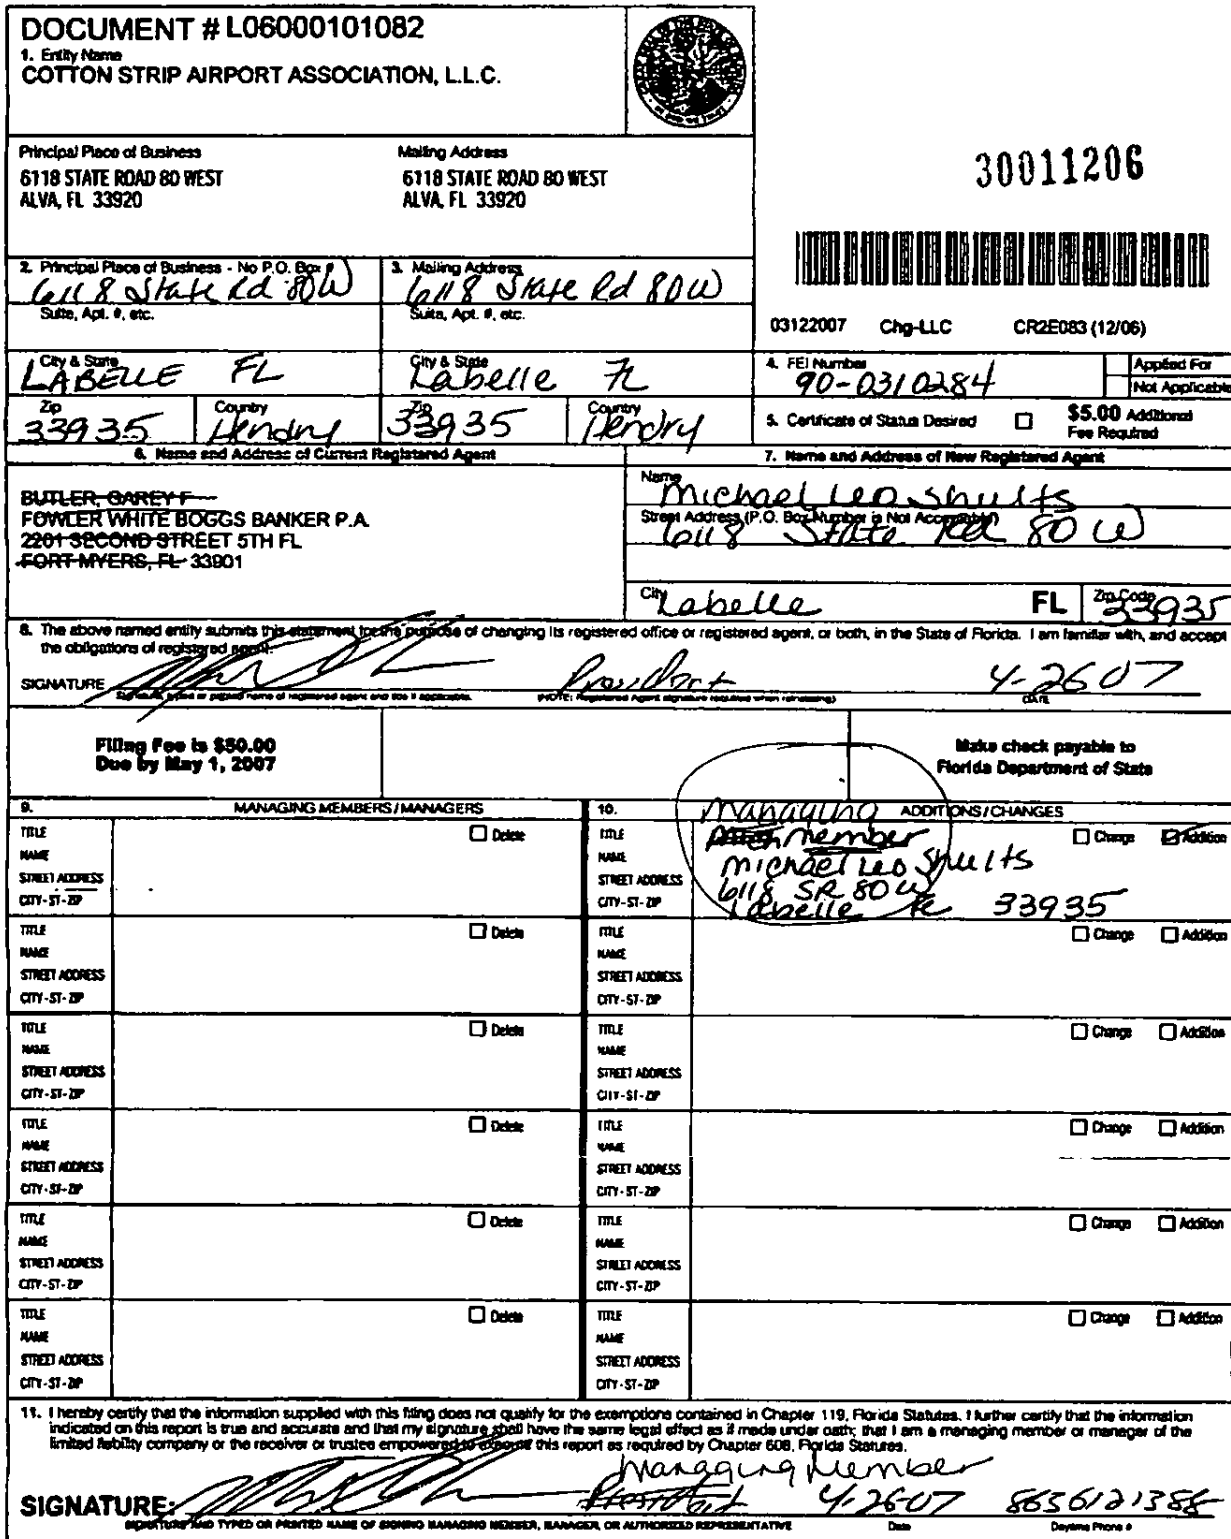 DOCUMENT # L06000101082
1. Entity Name
COTTON STRIP AIRPORT ASSOCIATION, L.L.C.
Principal Place of Business
6118 STATE ROAD 80 WEST
ALVA, FL 33920
Mailing Address
6118 STATE ROAD 80 WEST
ALVA, FL 33920
30011206
2. Principal Place of Business - No P.O. Box #
6118 State Rd 80W
Suite, Apt. #, etc.
3. Mailing Address
6118 State Rd 80W
Suite, Apt. #, etc.
03122007 Chg-LLC CR2E083 (12/06)
City & State
LABELLE FL
City & State
Labelle FL
4. FEI Number
90-0310284
Applied For
Not Applicable
Zip
33935
Country
Hendry
Zip
33935
Country
Hendry
5. Certificate of Status Desired
$5.00 Additional
Fee Required
6. Name and Address of Current Registered Agent
BUTLER, GAREY F
FOWLER WHITE BOGGS BANKER P.A.
2201 SECOND STREET 5TH FL
FORT MYERS, FL 33901
7. Name and Address of New Registered Agent
Name
Michael Leo Shults
Street Address (P.O. Box Number is Not Acceptable)
6118 State Rd 80 W
City
Labelle
FL
Zip Code
33935
8. The above named entity submits this statement for the purpose of changing its registered office or registered agent, or both, in the State of Florida. I am familiar with, and accept
the obligations of registered agent.
SIGNATURE
President
4-26 07
Signature, typed or printed name of registered agent and title if applicable.
(NOTE: Registered Agent signature required when reinstating)
DATE
Filing Fee is $50.00
Due by May 1, 2007
Make check payable to
Florida Department of State
9. MANAGING MEMBERS/MANAGERS
10. ADDITIONS/CHANGES
TITLE
NAME
STREET ADDRESS
CITY-ST-ZIP
Delete
TITLE
NAME
STREET ADDRESS
CITY-ST-ZIP
Managing
member
Michael Leo Shults
6118 SR 80 W
Labelle FL 33935
Change
Addition
TITLE
NAME
STREET ADDRESS
CITY-ST-ZIP
Delete
TITLE
NAME
STREET ADDRESS
CITY-ST-ZIP
Change
Addition
TITLE
NAME
STREET ADDRESS
CITY-ST-ZIP
Delete
TITLE
NAME
STREET ADDRESS
CITY-ST-ZIP
Change
Addition
TITLE
NAME
STREET ADDRESS
CITY-ST-ZIP
Delete
TITLE
NAME
STREET ADDRESS
CITY-ST-ZIP
Change
Addition
TITLE
NAME
STREET ADDRESS
CITY-ST-ZIP
Delete
TITLE
NAME
STREET ADDRESS
CITY-ST-ZIP
Change
Addition
TITLE
NAME
STREET ADDRESS
CITY-ST-ZIP
Delete
TITLE
NAME
STREET ADDRESS
CITY-ST-ZIP
Change
Addition
11. I hereby certify that the information supplied with this filing does not qualify for the exemptions contained in Chapter 119, Florida Statutes. I further certify that the information
indicated on this report is true and accurate and that my signature shall have the same legal effect as if made under oath; that I am a managing member or manager of the
limited liability company or the receiver or trustee empowered to execute this report as required by Chapter 608, Florida Statutes.
Managing Member
SIGNATURE: President 4-26-07 8636121388
SIGNATURE AND TYPED OR PRINTED NAME OF SIGNING MANAGING MEMBER, MANAGER, OR AUTHORIZED REPRESENTATIVE
Date
Daytime Phone #